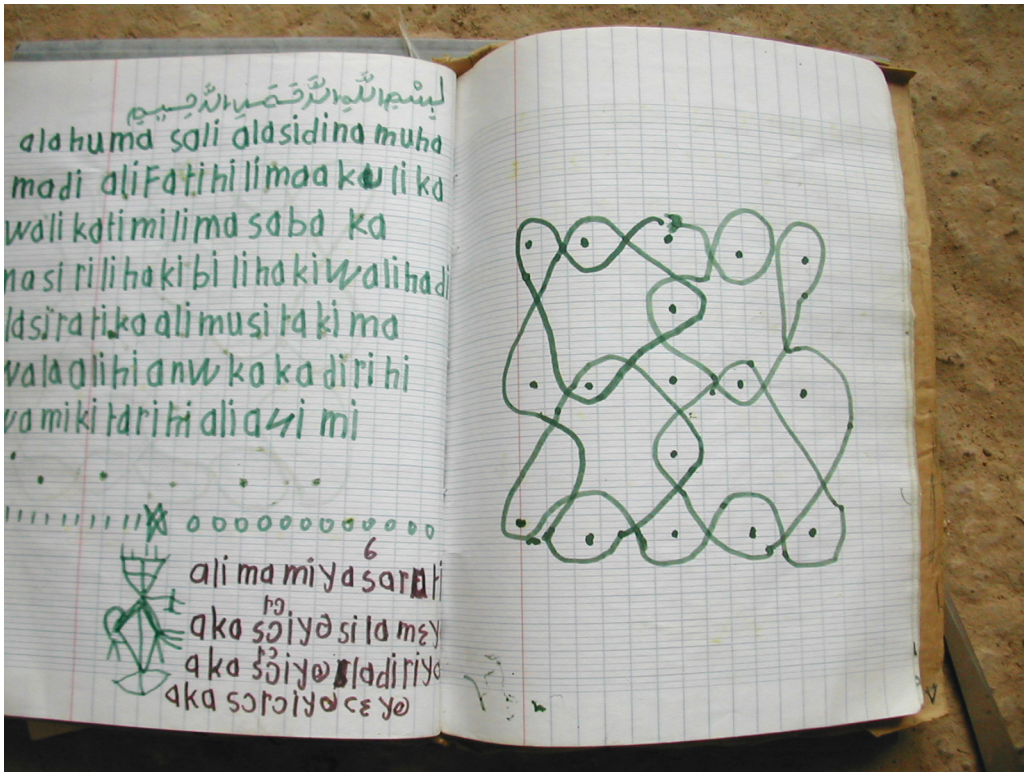 بِسْمِ اللَّهِ الرَّحْمَنِ الرَّحِيمِ
alahuma sali alasidina muha
madi aliFatihilimaa kuli ka
wali katimilima saba ka
nasirilihakibi lihakiwalihadi
lasiratika alimusitakima
walaalihi anw kakadirihi
wamikitarihi aliayimi
6
alimamiyasarati
aka sɔiyasilamɛy
aka sɔiya ladiriya
aka sɔrɔiyaɔɛya